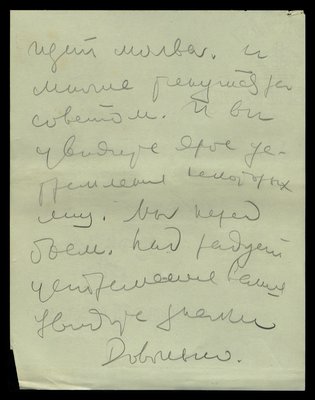 идет молва. и
многие
советом. И вы
увидите ярое ус-
тремление некоторых
лиц. Мы перед
боем. Нас радует
устремление ваше
Увидите знаки
Довольно.